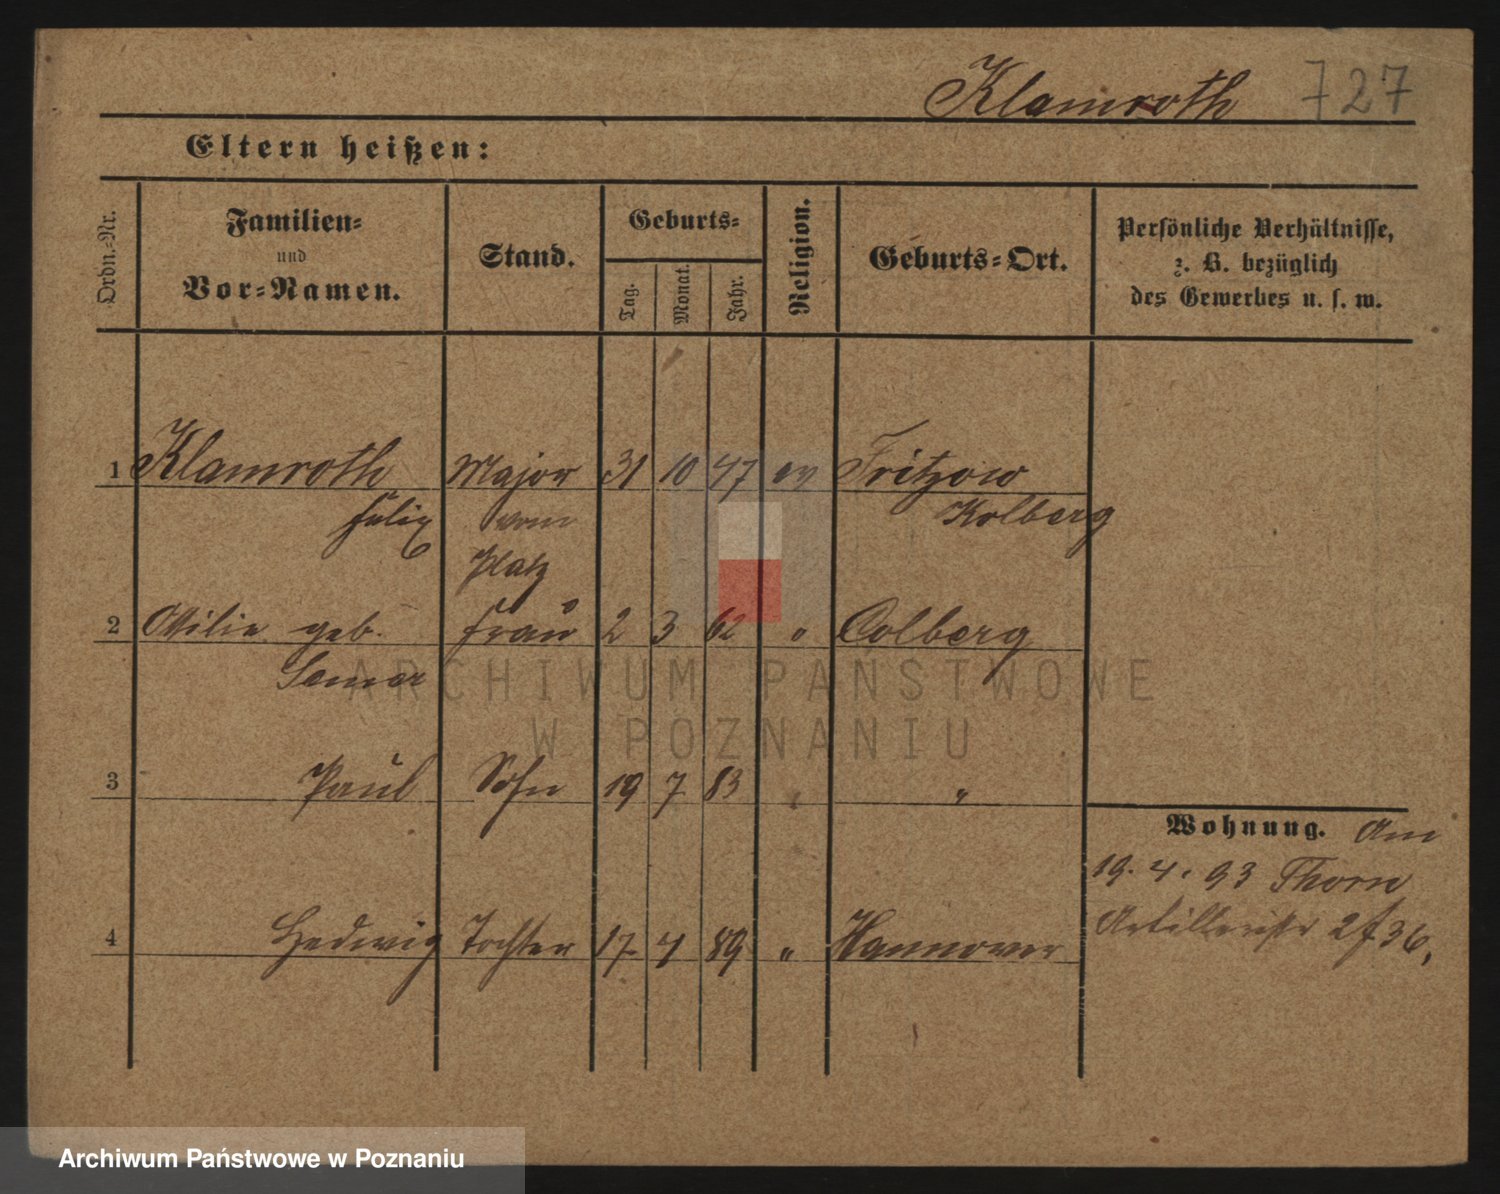 Klamroth 727
Eltern heißen:
Ordn.-Nr.
Familien-
und
Vor-Namen.
Stand.
Geburts-
Tag.
Monat.
Jahr.
Religion.
Geburts-Ort.
Persönliche Verhältnisse,
z. B. bezüglich
des Gewerbes u. s. w.
1 Klamroth Major 31 10 47 ev Fritzow
Felix vom Kolberg
Platz
2 Ottilie geb. Frau 2 3 62 " Colberg
3 Paul Sohn 19 7 83 " "
Wohnung. Am
19. 4. 93 Thorn
4 Hedwig Tochter 17 4 89 " Hannover
ARCHIWUM PAŃSTWOWE
W POZNANIU
Archiwum Państwowe w Poznaniu